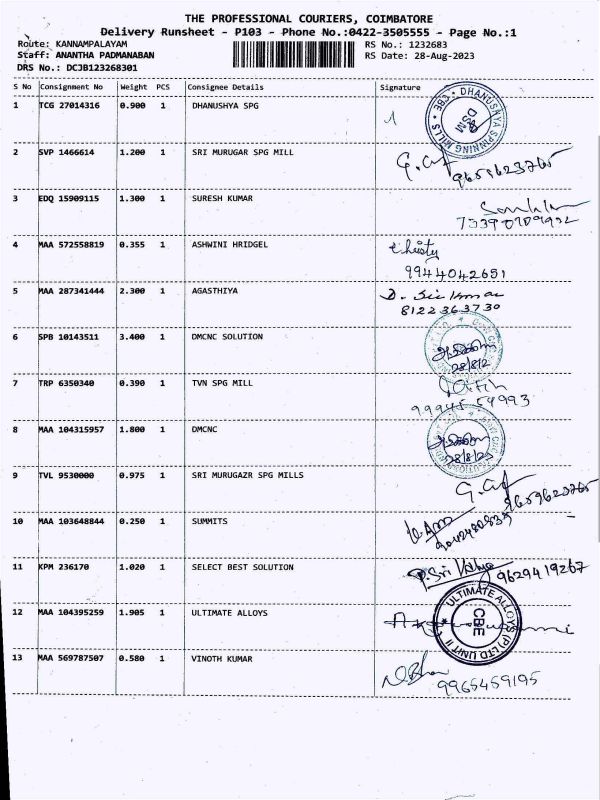 THE PROFESSIONAL COURIERS, COIMBATORE
Delivery Runsheet - P103 - Phone No.:0422-3505555 - Page No.:1
Route: KANNAMPALAYAM RS No.: 1232683
Staff: ANANTHA PADMANABAN RS Date: 28-Aug-2023
DRS No.: DCJB123268301
S No Consignment No Weight PCS Consignee Details Signature
1 TCG 27014316 0.900 1 DHANUSHYA SPG
DHANUSAYA SPINNING MILLS CBE
2 SVP 1466614 1.200 1 SRI MURUGAR SPG MILL
9659623765
3 EDQ 15909115 1.300 1 SURESH KUMAR
4 MAA 572558819 0.355 1 ASHWINI HRIDGEL
9944042651
5 MAA 287341444 2.300 1 AGASTHIYA
8122363730
6 SPB 10143511 3.400 1 DMCNC SOLUTION
7 TRP 6350340 0.390 1 TVN SPG MILL
8 MAA 104315957 1.800 1 DMCNC
9 TVL 9530000 0.975 1 SRI MURUGAZR SPG MILLS
10 MAA 103648844 0.250 1 SUMMITS
11 KPM 236170 1.020 1 SELECT BEST SOLUTION
9629419267
12 MAA 104395259 1.905 1 ULTIMATE ALLOYS
ULTIMATE ALLOYS (P) LTD UNIT II
CBE
13 MAA 569787507 0.580 1 VINOTH KUMAR
9965459195